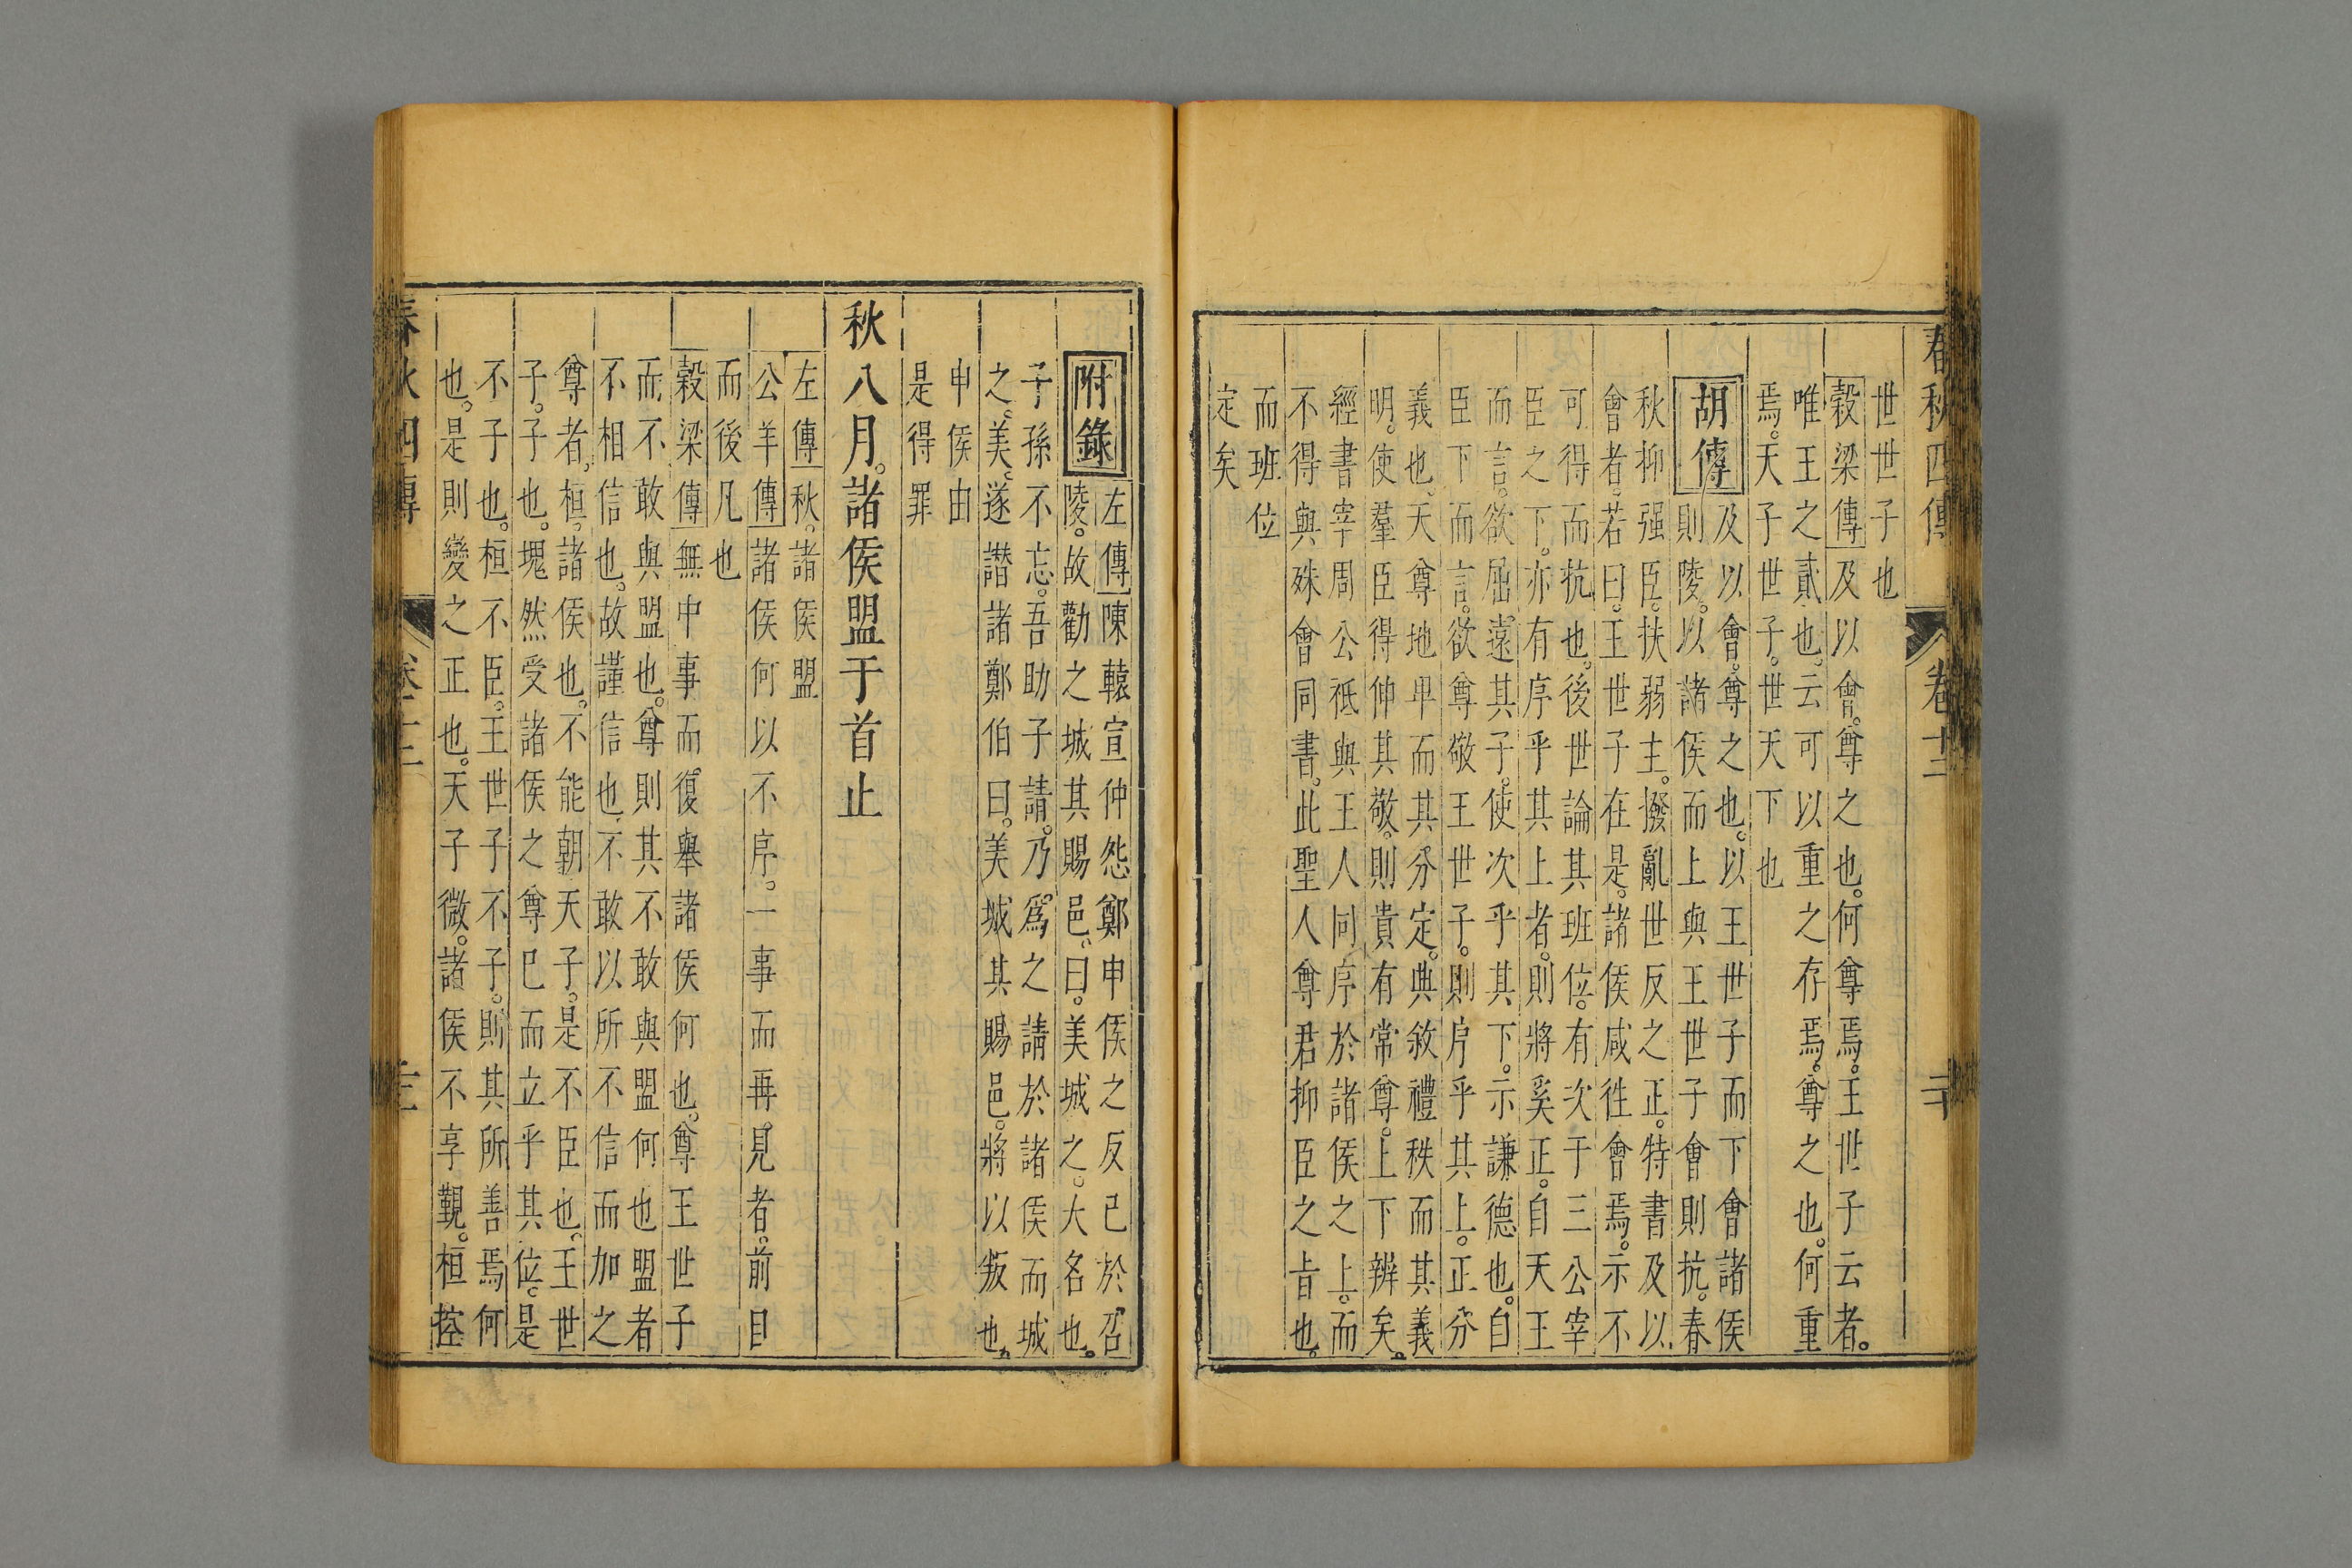 春秋四傳 卷十二 二十
世世子也
穀梁傳及以會。尊之也。何尊焉。王世子云者。
唯王之貳也。云可以重之存焉。尊之也。何重
焉。天子世子。世天下也
胡傳及以會。尊之也。以王世子而下會諸侯
則陵。以諸侯而上與王世子會則抗。春
秋抑强臣。扶弱主。撥亂世反之正。特書及以
會者。若曰。王世子在是。諸侯咸徃會焉。示不
可得而抗也。後世論其班位。有次于三公宰
臣之下。亦有序乎其上者。則將奚正。自天王
而言。欲屈遠其子。使次乎其下。示謙德也。自
臣下而言。欲尊敬王世子。則序乎其上。正分
義也。天尊地卑而其分定。典敘禮秩而其義
明。使羣臣得伸其敬。則貴有常尊。上下辨矣。
經書宰周公祗與王人同序於諸侯之上。而
不得與殊會同書。此聖人尊君抑臣之㫖也。
而班位
定矣
附錄左傳陳轅宣仲怨鄭申侯之反已於召
陵。故勸之城其賜邑。曰。美城之。大名也。
子孫不忘。吾助子請。乃爲之請於諸侯而城
之。美。遂譖諸鄭伯曰。美城其賜邑。將以叛也。
申侯由
是得罪
秋八月。諸侯盟于首止
左傳秋。諸侯盟
公羊傳諸侯何以不序。一事而再見者。前目
而後凡也
穀梁傳無中事而復舉諸侯何也。尊王世子
而不敢與盟也。尊則其不敢與盟何也盟者
不相信也。故謹信也。不敢以所不信而加之
尊者。桓。諸侯也。不能朝天子。是不臣也。王世
子。子也。塊然受諸侯之尊巳而立乎其位。是
不子也。桓不臣。王世子不子。則其所善焉何
也。是則變之正也。天子微。諸侯不享覲。桓控
春秋四傳 卷十二